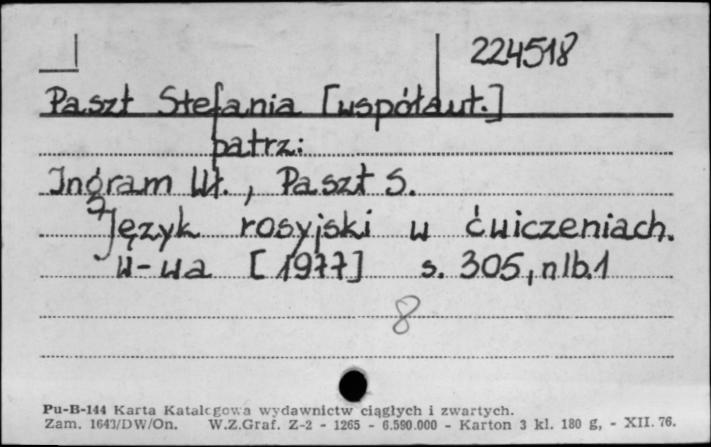 224518
Paszt Stefania [współaut.]
patrz:
Ingram Wł., Paszt S.
Język rosyjski w ćwiczeniach.
W-wa [1977] s. 305, nlb.1
8
Pu-B-144 Karta Katalogowa wydawnictw ciągłych i zwartych.
Zam. 1643/DW/On. W.Z.Graf. Z-2 - 1265 - 6.590.000 - Karton 3 kl. 180 g, - XII. 76.